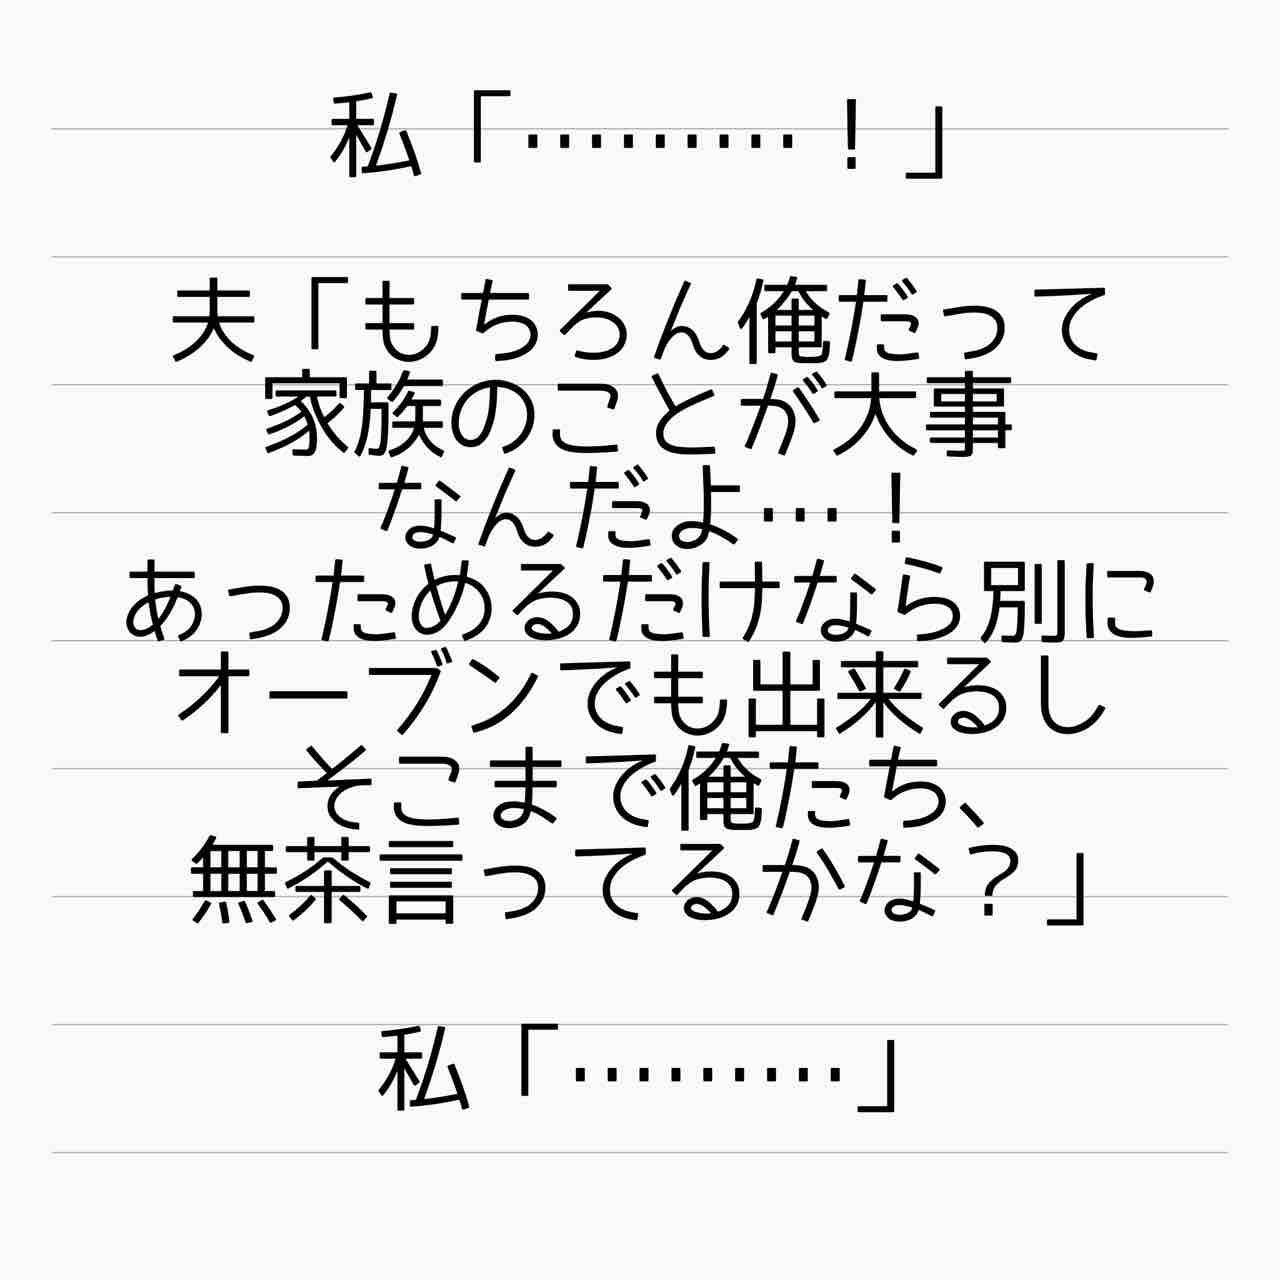 私「………！」
夫「もちろん俺だって
家族のことが大事
なんだよ…！
あっためるだけなら別に
オーブンでも出来るし
そこまで俺たち、
無茶言ってるかな？」
私「………」